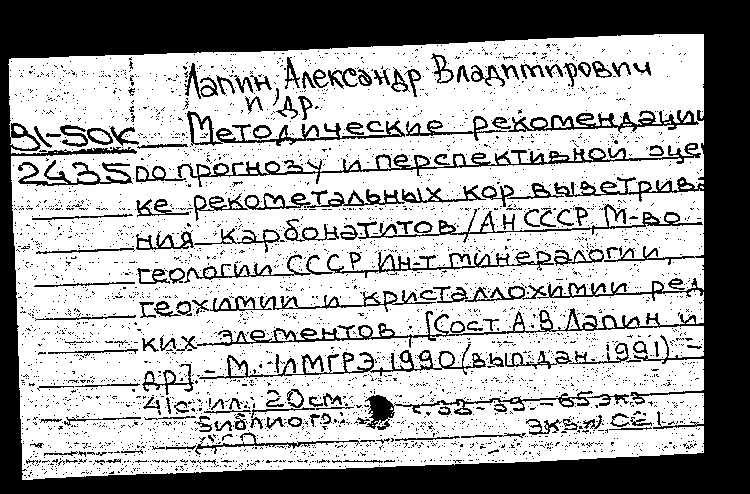 Лапин, Александр Владимирович
и др.
91-50к Методические рекомендации
2435 по прогнозу и перспективной оцен
ке рекометальных кор выветрива
ния карбонатитов / АН СССР, М-во
геологии СССР, Ин-т минералогии,
геохимии и кристаллохимии ред
ких элементов; [Сост. А.В. Лапин и
др]. - М.: ИМГРЭ, 1990 (вып. дан. 1991). -
41 с. ил.; 20 см.
Библиогр.: с. 33-39. - 65 экз.
ДСП